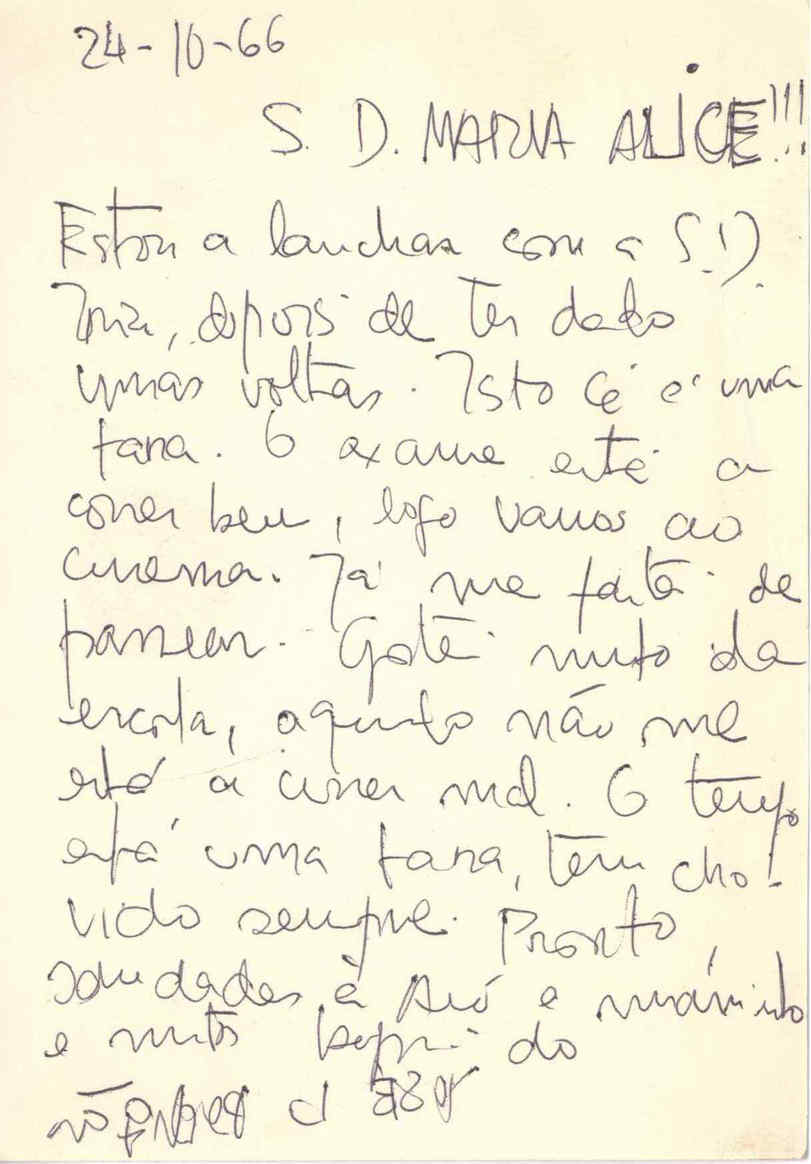 24-10-66
S. D. MARIA ALICE!!!
Estou a lanchar com a S.D.
depois de ter dado
umas voltas. Isto cá é uma
tara. O exame está a
correr bem, logo vamos ao
cinema. Já me fartei de
passear. Gostei muito da
escola, aquilo não me
está a correr mal. O tempo
está uma tara, tem cho-
vido sempre. Pronto,
saudades à Avó e
e muitos do